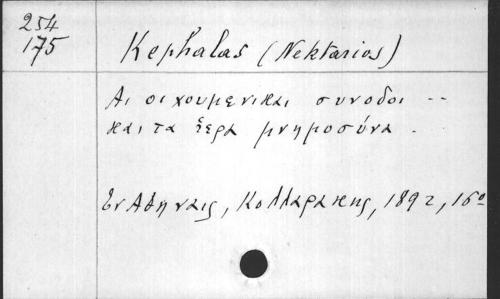 254
175
Kephalas (Nektarios)
Αι οιχουμενικαι συνοδοι --
και τα ἱερα μνημοσύνα .
Εν Αθηναις, Κολλαρακης, 1892, 16º